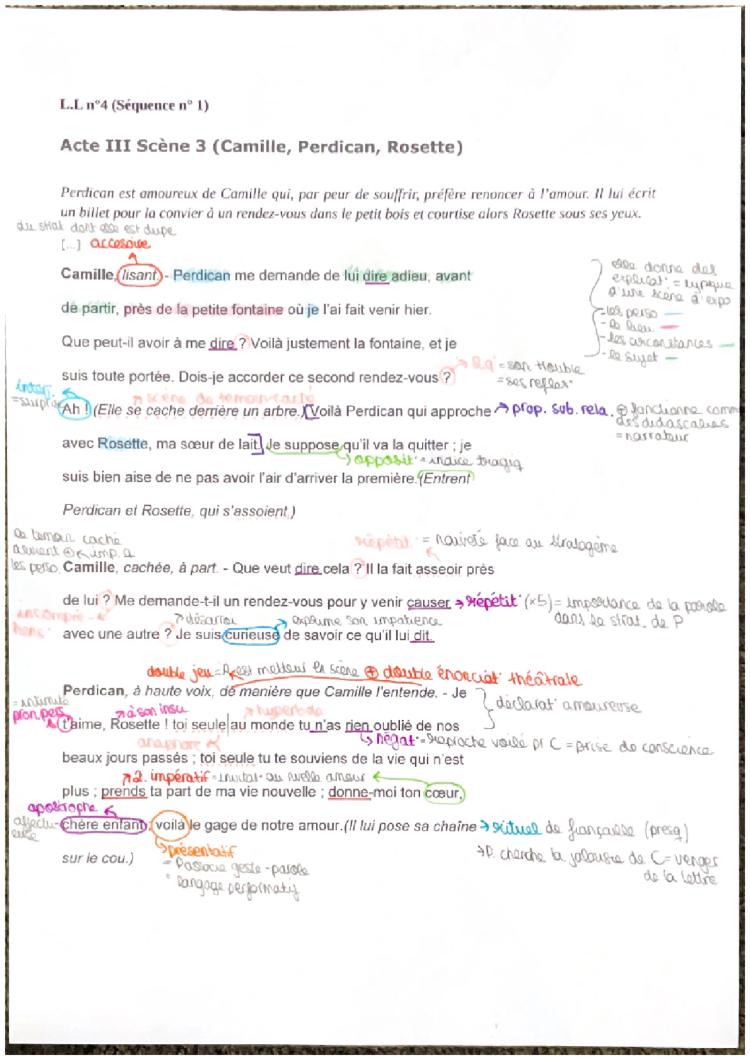 L.L n°4 (Séquence n° 1)
Acte III Scène 3 (Camille, Perdican, Rosette)
Perdican est amoureux de Camille qui, par peur de souffrir, préfère renoncer à l'amour. Il lui écrit
un billet pour la convier à un rendez-vous dans le petit bois et courtise alors Rosette sous ses yeux.
du strat dont elle est dupe
[...] accessoire
Camille, lisant - Perdican me demande de lui dire adieu, avant
elle donne des
explicat° = typique
d'une scène d'expo
de partir, près de la petite fontaine où je l'ai fait venir hier.
- les perso
- le lieu
- les circonstances
- le sujet
Que peut-il avoir à me dire ? Voilà justement la fontaine, et je
suis toute portée. Dois-je accorder ce second rendez-vous ?
= son trouble
= ses reflex°
interj.
= surprise
scène de témoin caché
Ah ! (Elle se cache derrière un arbre.) Voilà Perdican qui approche
prop. sub. rela. ⊕ fonctionne comme
des didascalies
= narrateur
avec Rosette, ma sœur de lait. Je suppose qu'il va la quitter ; je
opposit° = indice tragiq
suis bien aise de ne pas avoir l'air d'arriver la première. (Entrent
Perdican et Rosette, qui s'assoient.)
le témoin caché
devient ⊕ imp. q
les perso
répétit° = naïveté face au stratagème
Camille, cachée, à part. - Que veut dire cela ? Il la fait asseoir près
de lui ? Me demande-t-il un rendez-vous pour y venir causer
répétit° (x5) = importance de la parole
dans la strat. de P
incompré-
hens°
désarroi
exprime son impatience
avec une autre ? Je suis curieuse de savoir ce qu'il lui dit.
double jeu = P est metteur en scène ⊕ double énonciat° théâtrale
Perdican, à haute voix, de manière que Camille l'entende. - Je
déclarat° amoureuse
= intimité
pron. pers.
à son insu
hyperbole
t'aime, Rosette ! toi seule au monde tu n'as rien oublié de nos
négat° = reproche voilé pr C = prise de conscience
anaphore
beaux jours passés ; toi seule tu te souviens de la vie qui n'est
2. impératif = invitat° au nvelle amour
plus ; prends ta part de ma vie nouvelle ; donne-moi ton cœur,
apostrophe
affectu-
euse
chère enfant ; voilà le gage de notre amour. (Il lui pose sa chaîne
rituel de fiançailles (presq)
présentatif
P. cherche la jalousie de C = venger
de la lettre
sur le cou.)
= associe geste - parole
= langage performatif